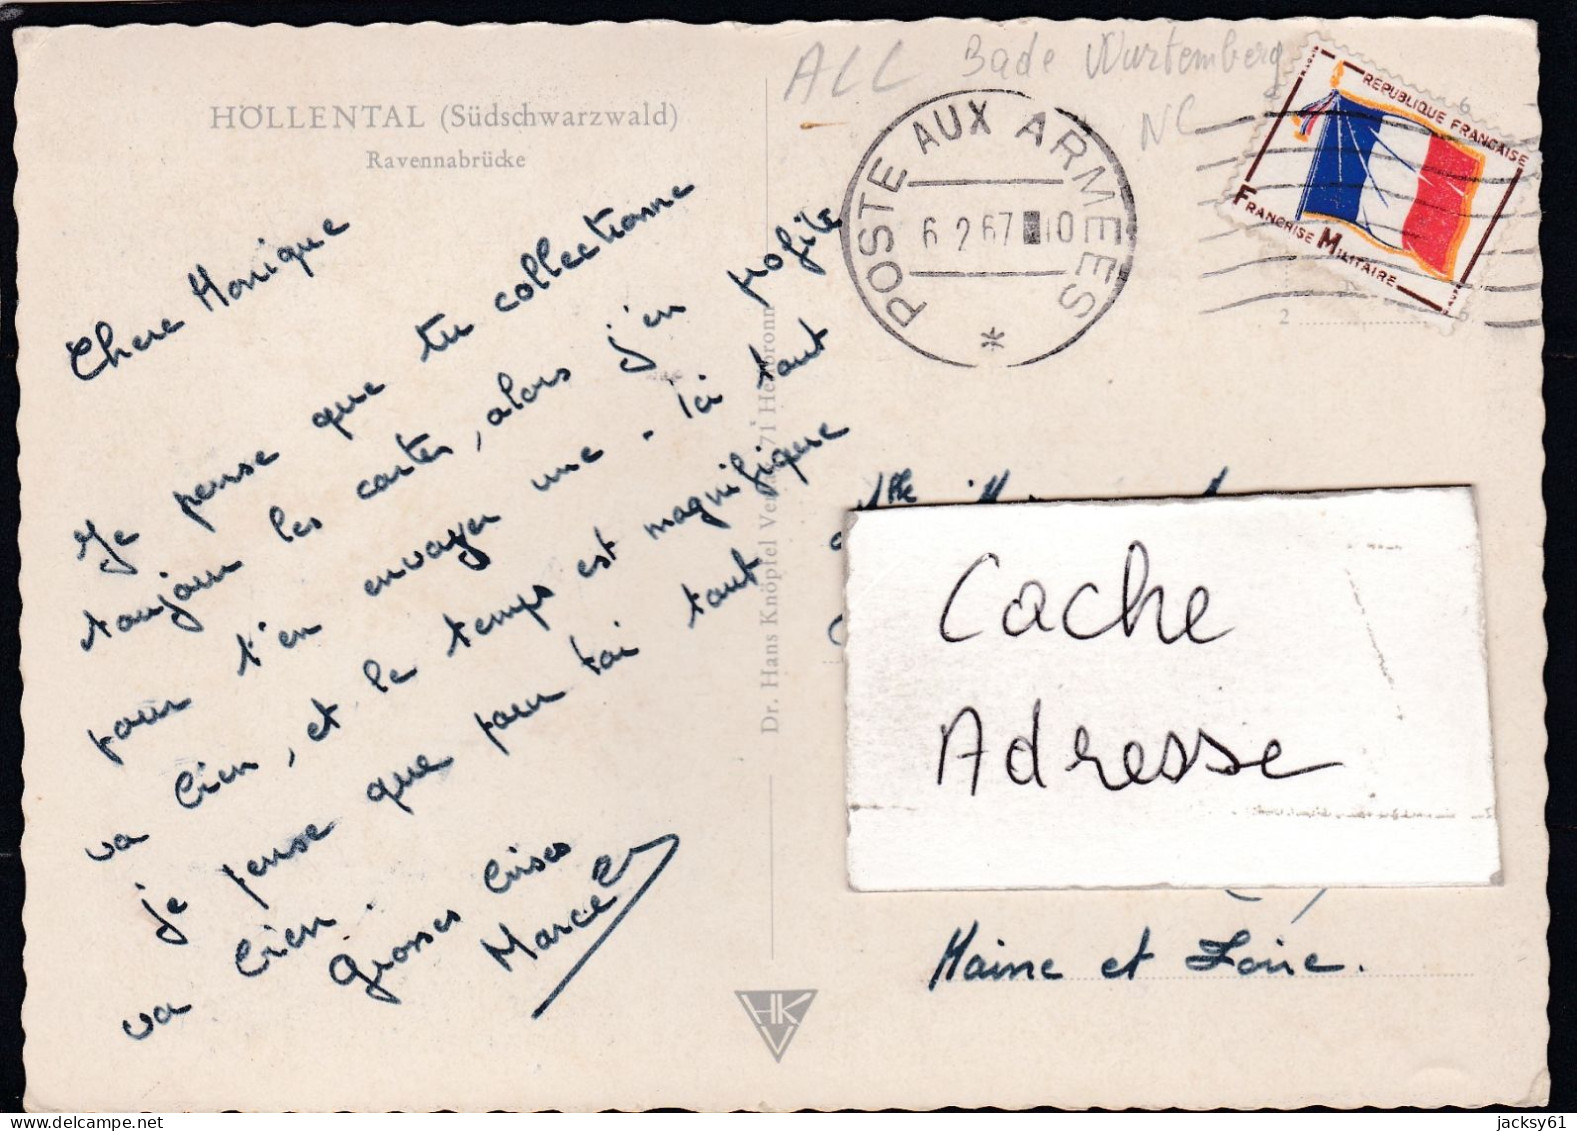 HÖLLENTAL (Südschwarzwald)
Ravennabrücke
Chere Monique
Je pense que tu collectionne
toujours les cartes, alors j'en profite
pour t'en envoyer une - Ici tout
va bien, et le temps est magnifique
je pense que pour toi tout
va bien.
Grosses bises
Marcel
Dr. Hans Knöpfel Verlag 71 Heilbronn
HKV
ALL Bade Wurtemberg
NC
POSTE AUX ARMEES
6 2 67 10
*
REPUBLIQUE FRANCAISE
FRANCHISE MILITAIRE
6
2
6
Mlle
Cache
Adresse
Maine et Loire.
jacksy61